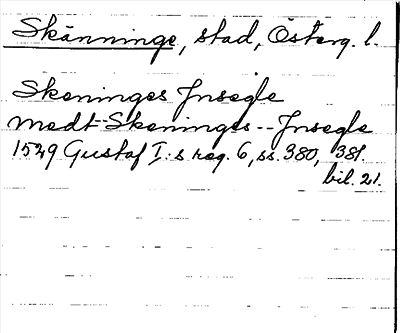 Skänninge, stad, Österg. l.
Skeninges Jnsegle
medt Skeninges -- Jnsegle
1529 Gustaf I:s reg. 6, ss. 380, 381.
bil. 21.